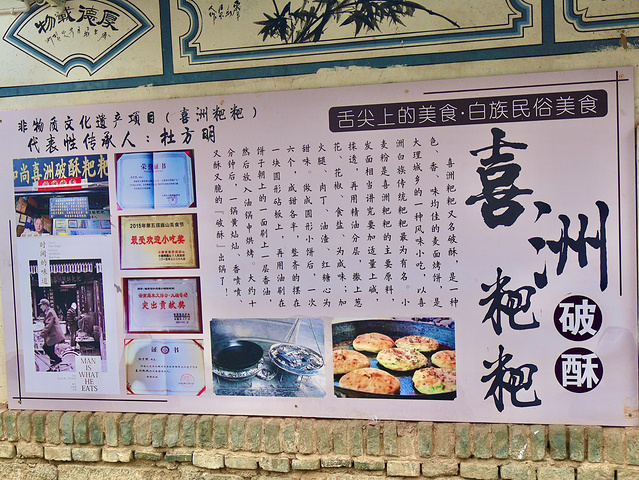 厚德載物
非物质文化遗产项目(喜洲粑粑)
代表性传承人:杜方明
舌尖上的美食·白族民俗美食
喜洲粑粑
破酥
喜洲粑粑又名破酥,是一种
色、香、味均佳的麦面烤饼,是
大理城乡的一种风味小吃,以喜
洲白族传统粑粑最为有名。小
麦粉是喜洲粑粑的主要原料,
发面相当讲究要加适量土碱,
揉透,再用精油分层,撒上葱
花、花椒、食盐,为咸味;加
火腿、肉丁、油渣、红糖为
甜味,做成圆形小饼后,一次
六个,咸甜各半,整齐的摆在
一块圆形砧板上,再用油刷在
饼子朝上的一面刷上一层香油
然后放入油锅中烘烤,大约十
分钟后,一锅黄灿灿、香喷喷、
又酥又脆的“破酥”出锅了!
和尚喜洲破酥粑粑
荣誉证书
2015年第五届巍山美食节
最受欢迎小吃奖
突出贡献奖
证书
时间的味道
MAN
IS WHAT
HE EATS